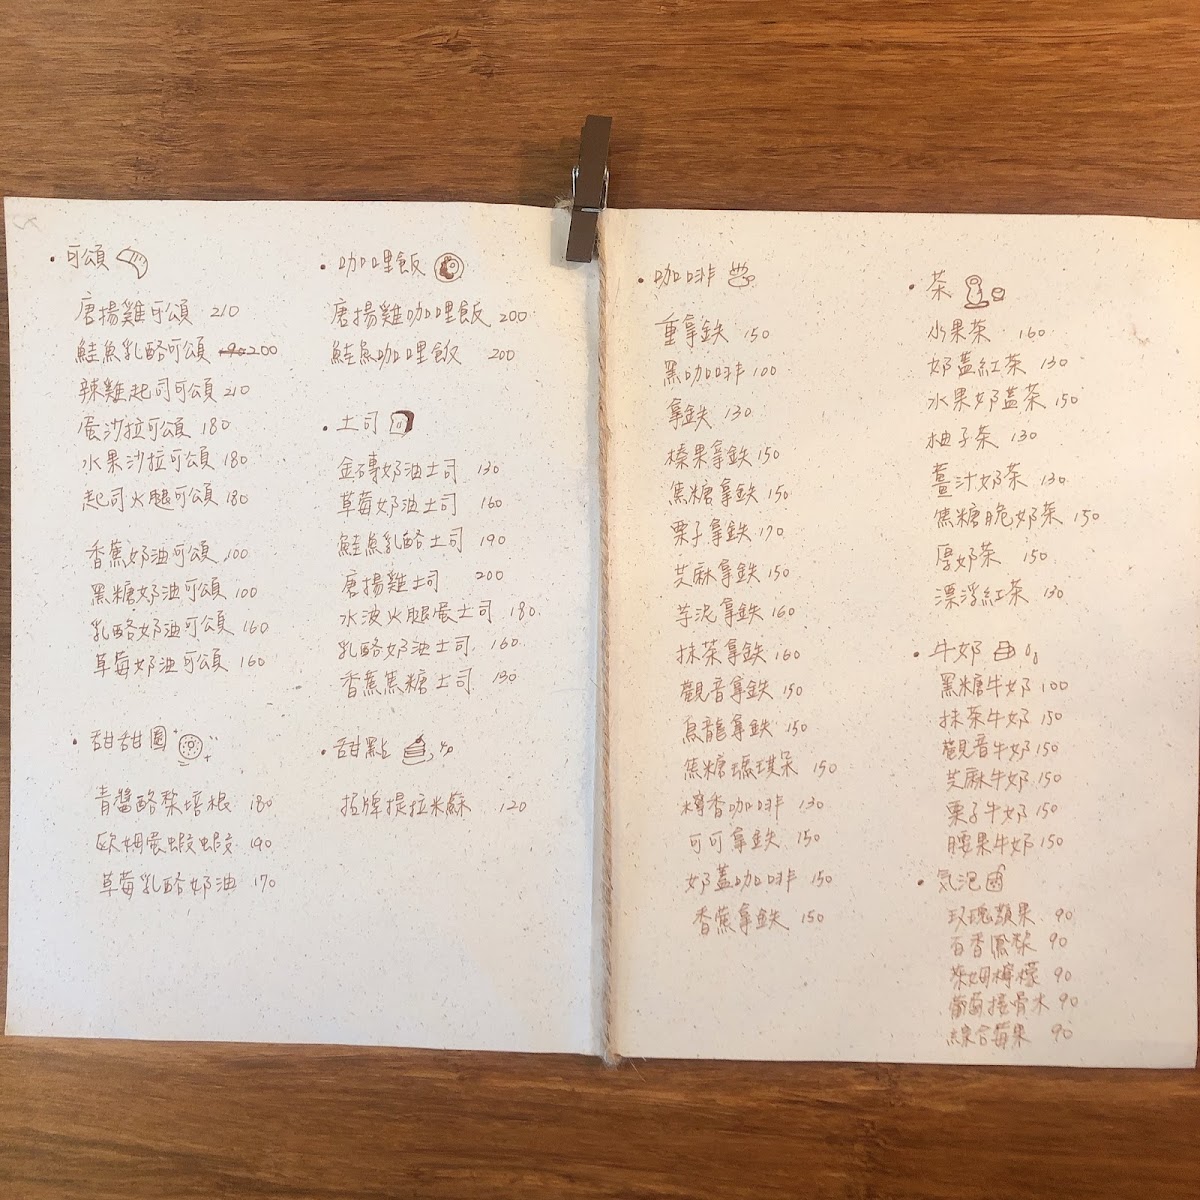 ・可頌
唐揚雞可頌 210
鮭魚乳酪可頌 200
辣雞起司可頌 210
蛋沙拉可頌 180
水果沙拉可頌 180
起司火腿可頌 180
香蕉奶油可頌 100
黑糖奶油可頌 100
乳酪奶油可頌 160
草莓奶油可頌 160
・甜甜圈
青醬酪梨培根 180
歐姆蛋蝦蝦 190
草莓乳酪奶油 170
・咖哩飯
唐揚雞咖哩飯 200
鮭魚咖哩飯 200
・土司
金磚奶油土司 130
草莓奶油土司 160
鮭魚乳酪土司 190
唐揚雞土司 200
水波火腿蛋土司 180
乳酪奶油土司 160
香蕉焦糖土司 130
・甜點
招牌提拉米蘇 120
・咖啡
重拿鉄 150
黑咖啡 100
拿鉄 130
榛果拿鉄 150
焦糖拿鉄 150
栗子拿鉄 170
芝麻拿鉄 150
芋泥拿鉄 160
抹茶拿鉄 160
觀音拿鉄 150
烏龍拿鉄 150
焦糖瑪琪朵 150
檸香咖啡 130
可可拿鉄 150
奶蓋咖啡 150
香蕉拿鉄 150
・茶
水果茶 160
奶蓋紅茶 130
水果奶蓋茶 150
柚子茶 130
薑汁奶茶 130
焦糖脆奶茶 150
厚奶茶 150
漂浮紅茶 130
・牛奶
黑糖牛奶 100
抹茶牛奶 150
觀音牛奶 150
芝麻牛奶 150
栗子牛奶 150
腰果牛奶 150
・気泡
玫瑰蘋果 90
百香鳳梨 90
萊姆檸檬 90
葡萄接骨木 90
綜合莓果 90